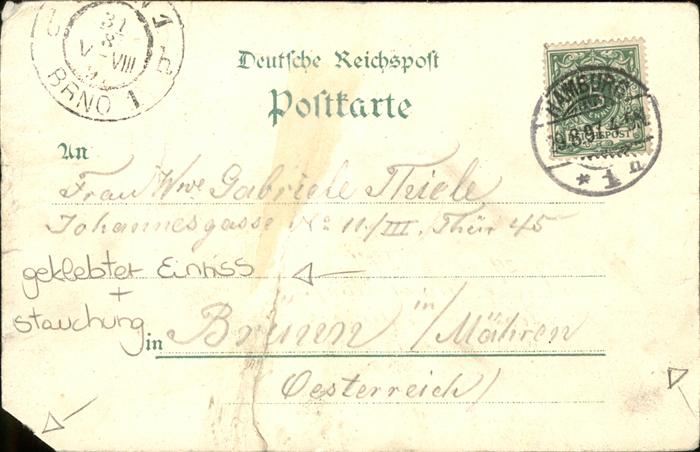 BRNO 1
31
V-VIII
Deutsche Reichspost
Postkarte
HAMBURG
* 1 n
An
Frau Wwe Gabriele Thiele
Johannesgasse No 11/III. Thür 45
geklebter Einriss
+
Stauchung
in Brünn in /Mähren
Oesterreich/